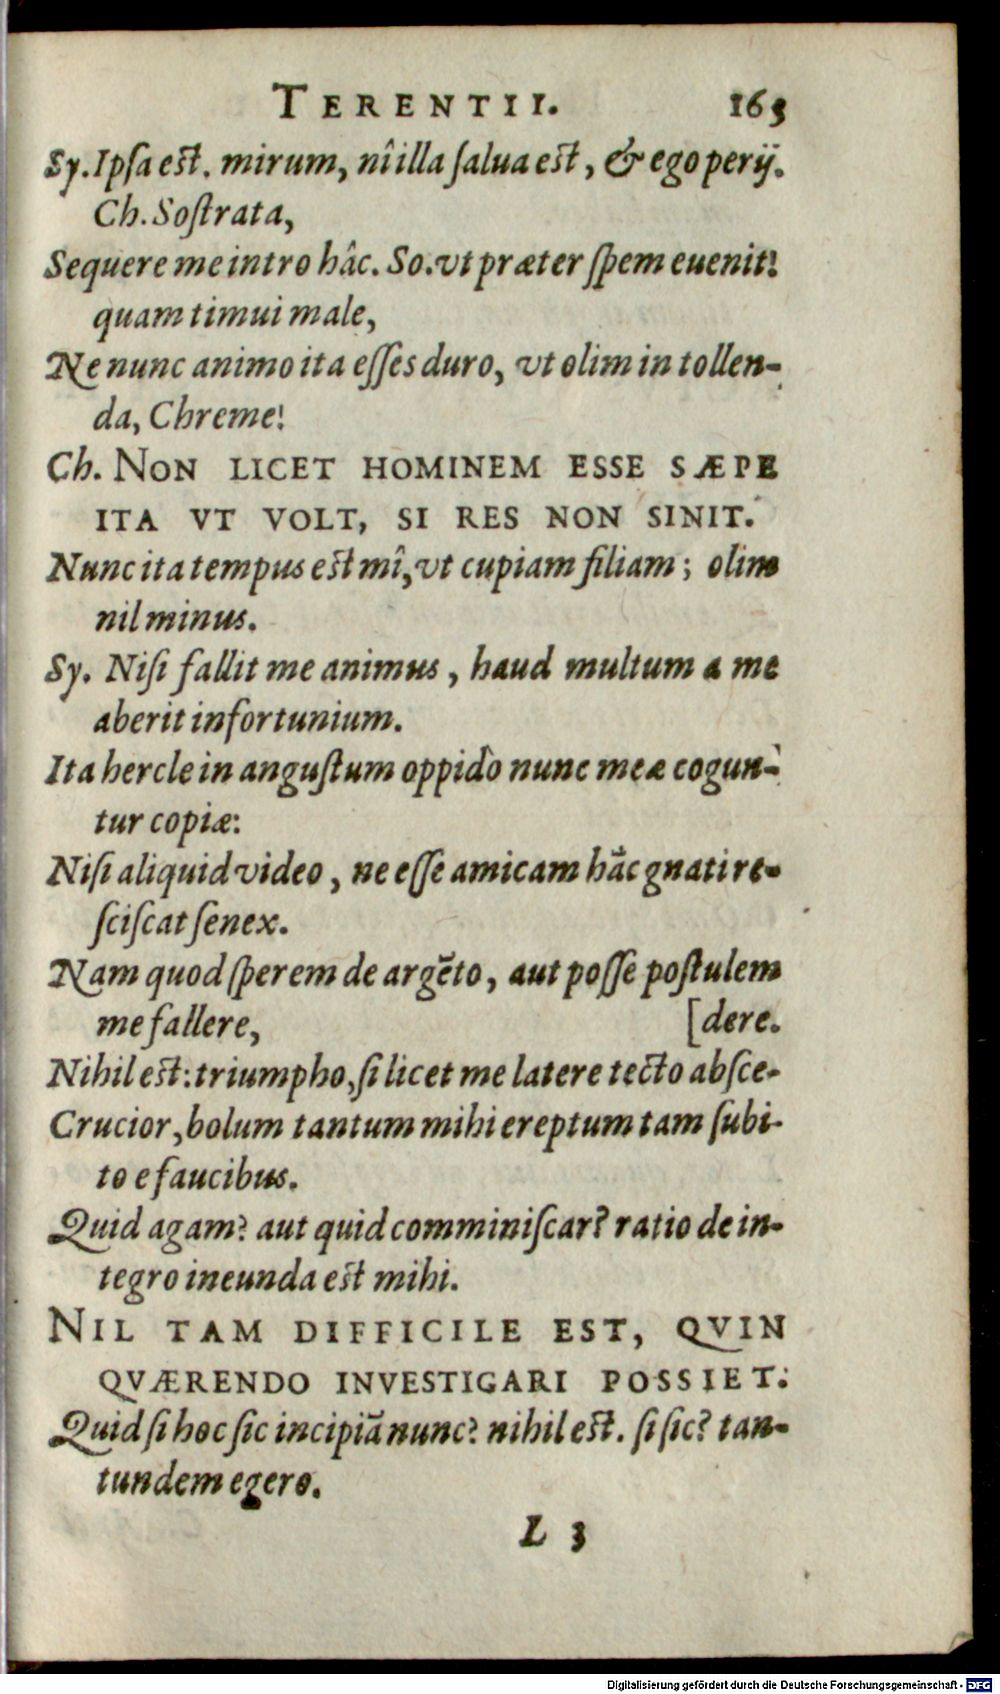 TERENTII. 165
Sy. Ipsa est. mirum, nî illa salua est, & ego perij.
Ch. Sostrata,
Sequere me intro hâc. So. vt præter spem euenit!
quam timui male,
Ne nunc animo ita esses duro, vt olim in tollen-
da, Chreme!
Ch. NON LICET HOMINEM ESSE SÆPE
ITA VT VOLT, SI RES NON SINIT.
Nunc ita tempus est mî, vt cupiam filiam; olim
nil minus.
Sy. Nisi fallit me animus, haud multum a me
aberit infortunium.
Ita hercle in angustum oppidò nunc meæ cogun-
tur copiæ:
Nisi aliquid video, ne esse amicam hãc gnati re-
sciscat senex.
Nam quod sperem de argẽto, aut posse postulem
me fallere, [dere.
Nihil est: triumpho, si licet me latere tecto absce-
Crucior, bolum tantum mihi ereptum tam subi-
to e faucibus.
Quid agam? aut quid comminiscar? ratio de in-
tegro ineunda est mihi.
NIL TAM DIFFICILE EST, QVIN
QVÆRENDO INVESTIGARI POSSIET:
Quid si hoc sic incipiã nunc? nihil est. si sic? tan-
tundem egero.
L 3
Digitalisierung gefördert durch die Deutsche Forschungsgemeinschaft - DFG